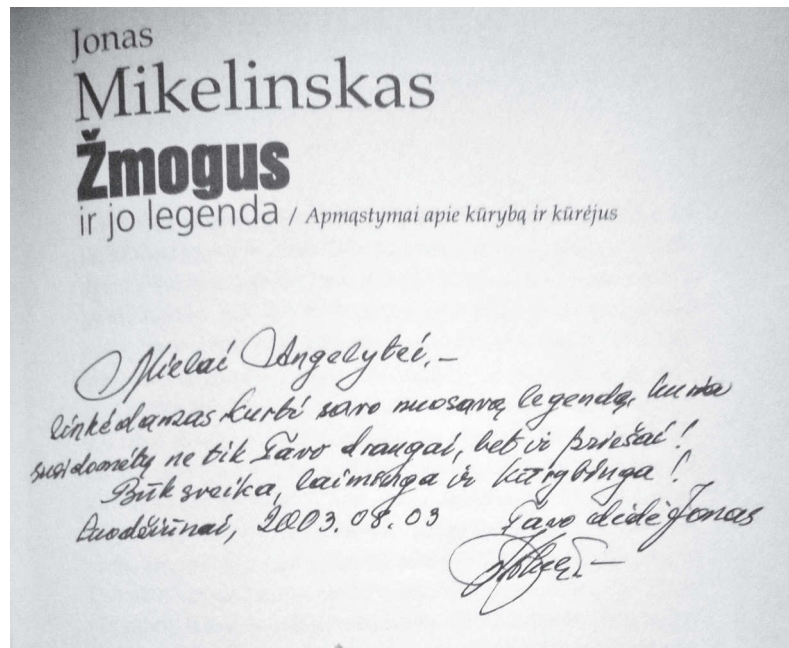 Jonas
Mikelinskas
Žmogus
ir jo legenda / Apmąstymai apie kūrybą ir kūrėjus
Mielai Angelytei, –
linkėdamas kurti savo nuosavą legendą, kuria
susidomėtų ne tik Tavo draugai, bet ir priešai!
Būk sveika, laiminga ir kūrybinga!
2003.08.03 Tavo dėdė Jonas